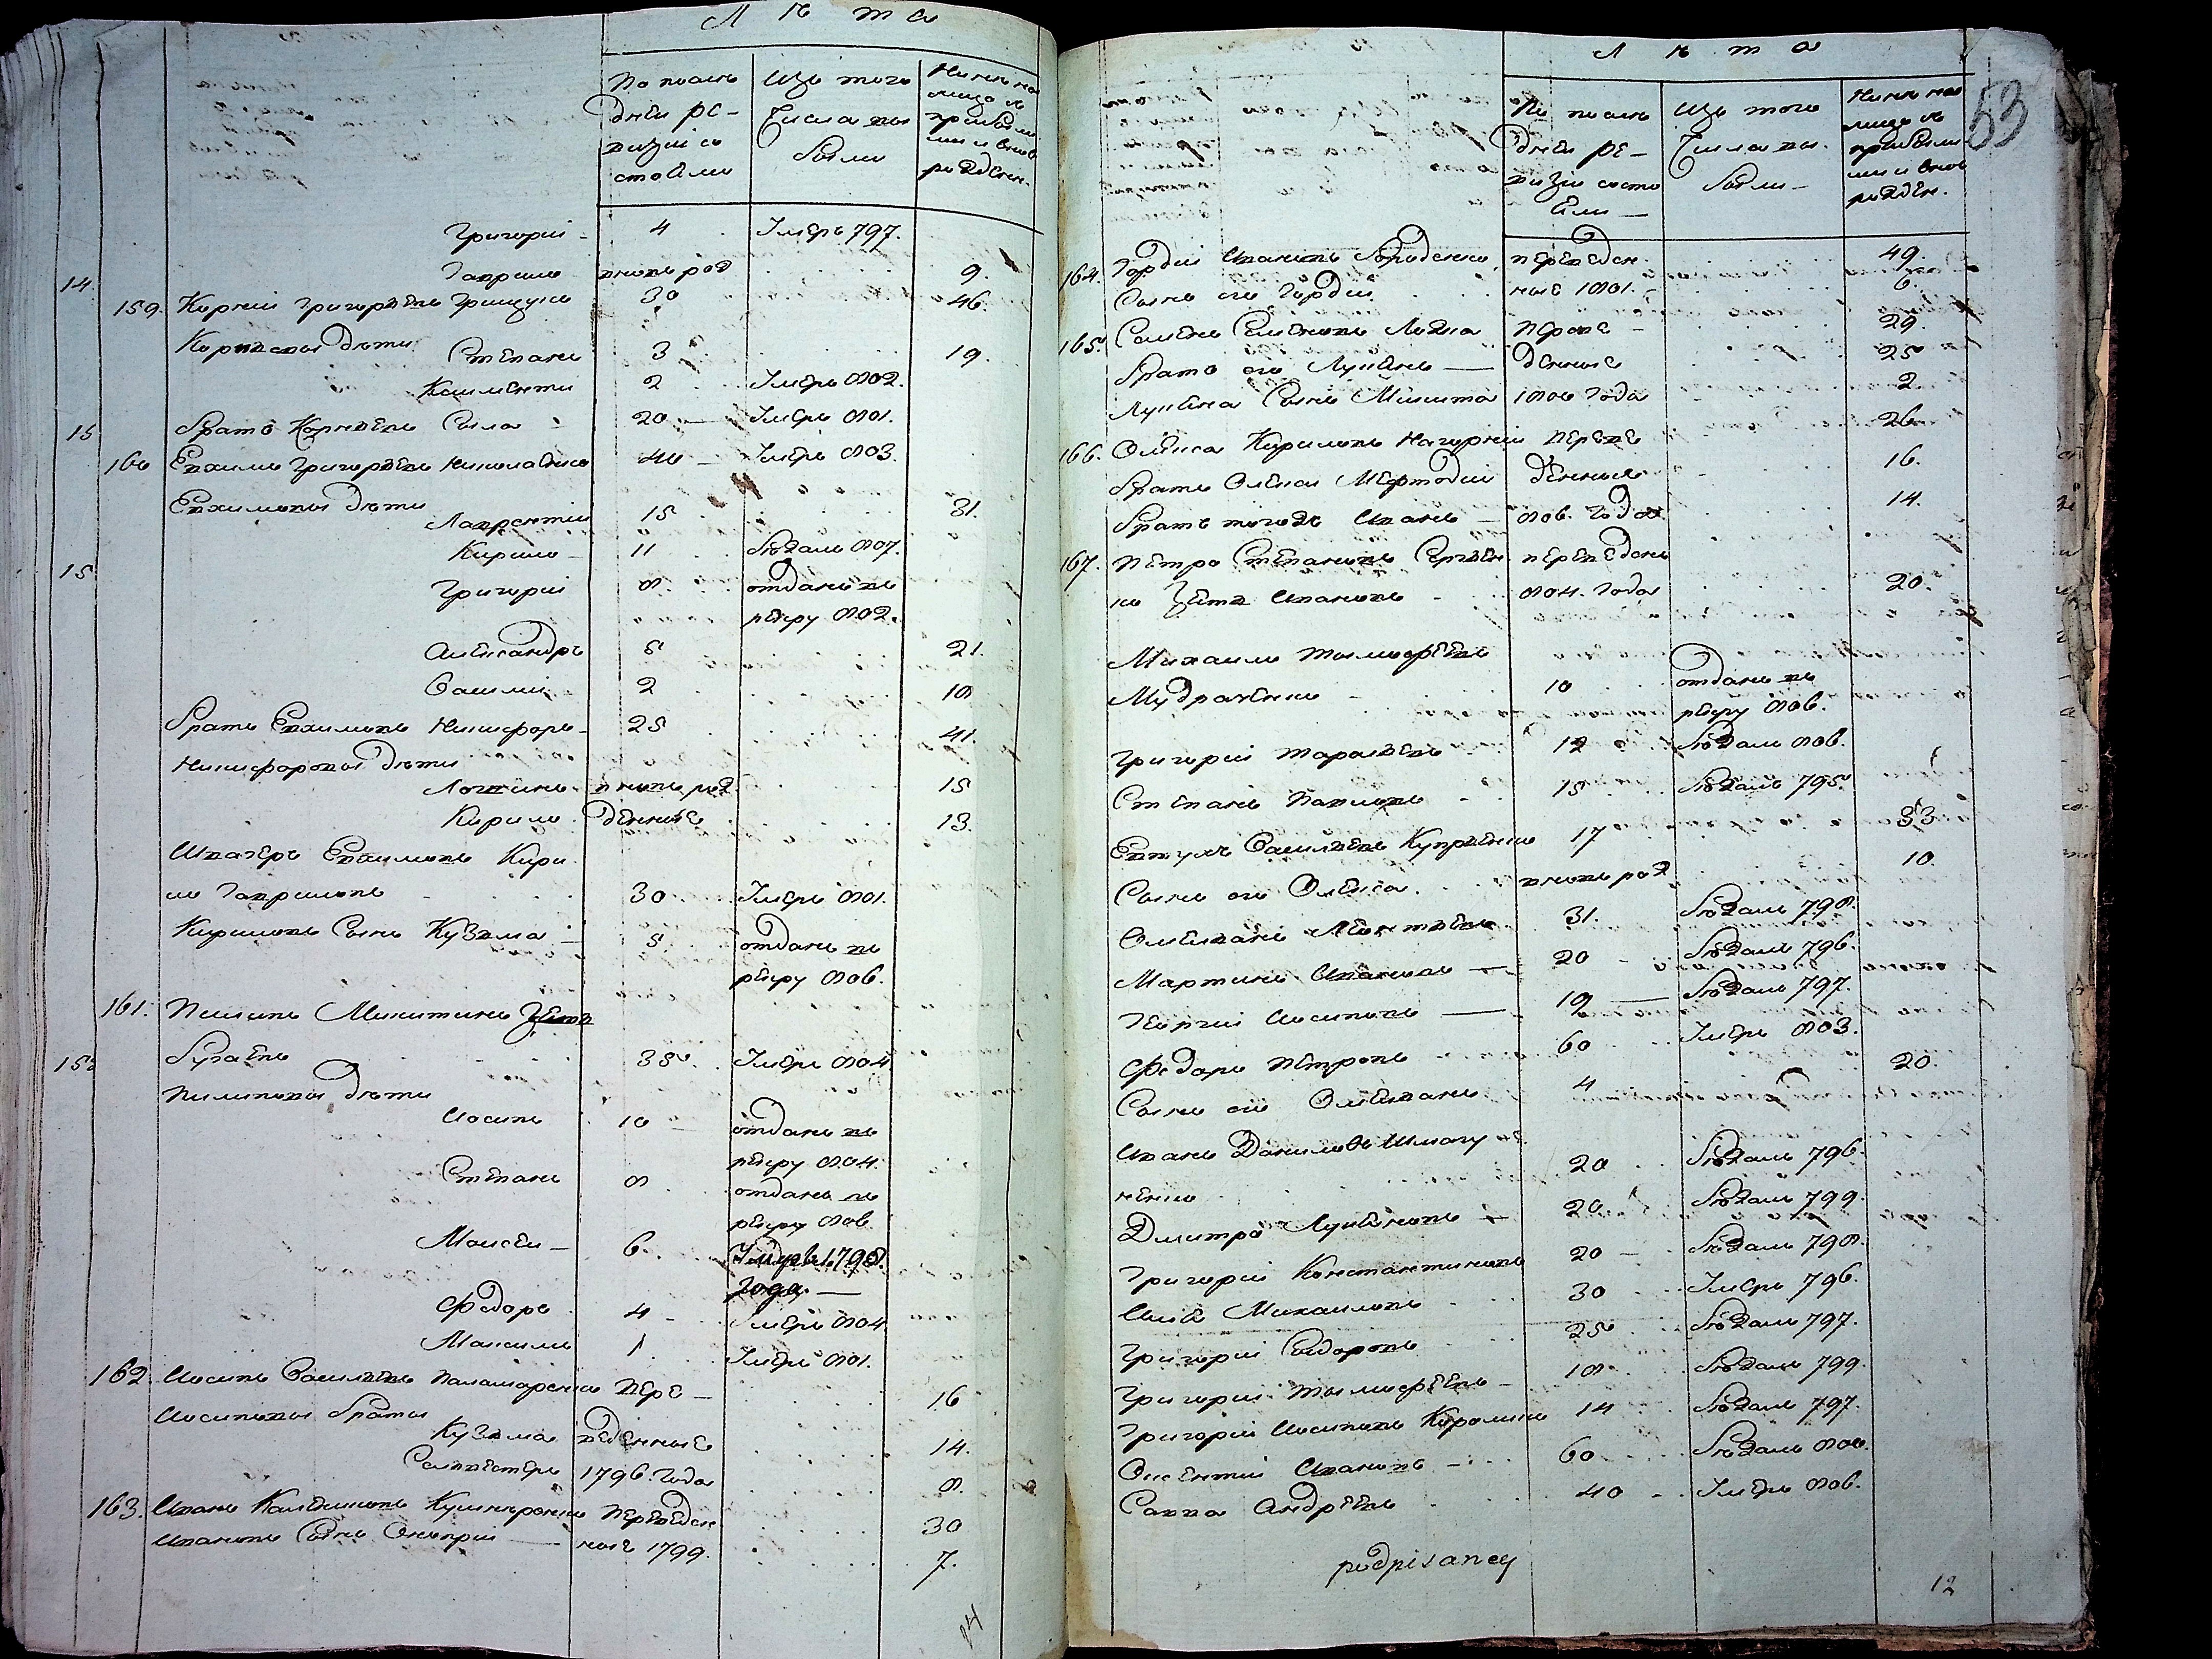 Лета
По послѣ
дней ре-
визіи со
стояли
Изъ того
Числа вы
были
Нынѣ на
лицо съ
прибыли
ми и вновь
рожден.
Григорій - 4 Умеръ 797.
14 Гаврило вновь рож 9.
159. Корній Григорьевъ Грищукъ 30 46.
Корнѣевы дѣти
Степанъ 3 19.
Климентій 2 Умеръ 802.
15 Братъ Корнѣевъ Сыла 20 Умеръ 801.
160 Евхимъ Григорьевъ Николаенко 40 Умеръ 803.
Евхимовы дѣти
Лаврентій 15 31.
Кирило 11 бѣжалъ 807.
15 Григорій 8 отданъ въ
рекру 802.
Александръ 5 21.
Василій 2 18
Братъ Евхимовъ Никифоръ 25 41.
Никифоровы дѣти
Логвинъ вновь рож 15
Кирило денные 13.
Швагеръ Евхимовъ Кири
ло Гавриловъ 30 Умеръ 801.
Кириловъ Сынъ Кузьма 5 отданъ въ
рекру 806.
161. Пилипъ Микитинъ Зять
152 Бугаевъ 35 Умеръ 804
Пилиповы дѣти
Иосипъ 10 отданъ въ
рекру 804.
Степанъ 8 отданъ въ
рекру 806
Моисей 6 Умеръ 1798.
года
Федоръ 4 Умеръ 804
Максимъ 1 Умеръ 801.
162. Иосипъ Васильевъ Паламаренко Пере- 16
Иосиповы Браты
Кузьма веденные 14.
Сильвестеръ 1796. Года 8.
163. Иванъ Калениковъ Кушнѣренко Переведен 30
Ивановъ Сынъ Онопрій ные 1799. 7.
14
Лета
53
По послѣ
дней ре-
визіи состо
яли
Изъ того
Числа вы.
были
Нынѣ на
лицо съ
прибыли
ми и вновь
рожден.
164. Гордій Ивановъ Бороденко переведен 49.
Сынъ его Гордій ные 1801. 6.
165. Семенъ Семеновъ Ложка переве 29.
Братъ его Лукьянъ денные 25
Лукьяна Сынъ Микита 1806 Года 2
166. Олекса Кириловъ Нагорній Переве 26.
Братъ Олексы Мефтодій денные 16.
Братъ тогожъ Иванъ 806. Года 14.
167. Петро Степановъ Сергѣен переведенъ
ко Зять Ивановъ 804. Года 20.
Михаило Тымофеевъ
Мудраченко 10 отданъ въ
рекру 806.
Григорій Тарасьевъ 12 бѣжалъ 806.
Степанъ Павловъ 15 бѣжалъ 795.
Евтухъ Васильевъ Купрѣенко 17 33
Сынъ его Олекса вновь рож 10.
Омельянъ Леонтьевъ 31. бѣжалъ 798.
Мартинъ Ивановъ 20 бѣжалъ 796.
Георгій Иосиповъ 19 бѣжалъ 797.
Федоръ Петровъ 60 Умеръ 803.
Сынъ его Омельянъ 4 20.
Иванъ Даниловъ Шмагу
ненко 20 бѣжалъ 796.
Дмитро Лукьяновъ 20 бѣжалъ 799.
Григорій Константиновъ 20 бѣжалъ 798.
Илья Михаиловъ 30 Умеръ 796.
Григорій Сидоровъ 25 бѣжалъ 797.
Григорій Тымофеевъ 18 бѣжалъ 799.
Григорій Иосиповъ Король 14 бѣжалъ 797.
Оксентій Ивановъ 60 бѣжалъ 806.
Савва Андреевъ 40 Умеръ 806.
podpisaney
12